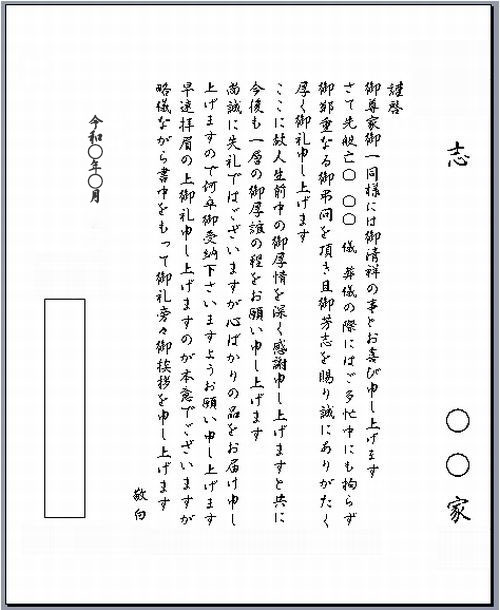 志
〇〇家
謹啓
御尊家御一同様には御清祥の事とお喜び申し上げます
さて先般亡〇 〇〇 儀 葬儀の際にはご多忙中にも拘らず
御鄭重なる御弔問を頂き且御芳志を賜り誠にありがたく
厚く御礼申し上げます
ここに故人生前中の御厚情を深く感謝申し上げますと共に
今後も一層の御厚誼の程をお願い申し上げます
尚誠に失礼ではございますが心ばかりの品をお届け申し
上げますので何卒御受納下さいますようお願い申し上げます
早速拝眉の上御礼申し上げますのが本意でございますが
略儀ながら書中をもって御礼旁々御挨拶を申し上げます
敬白
令和〇年〇月